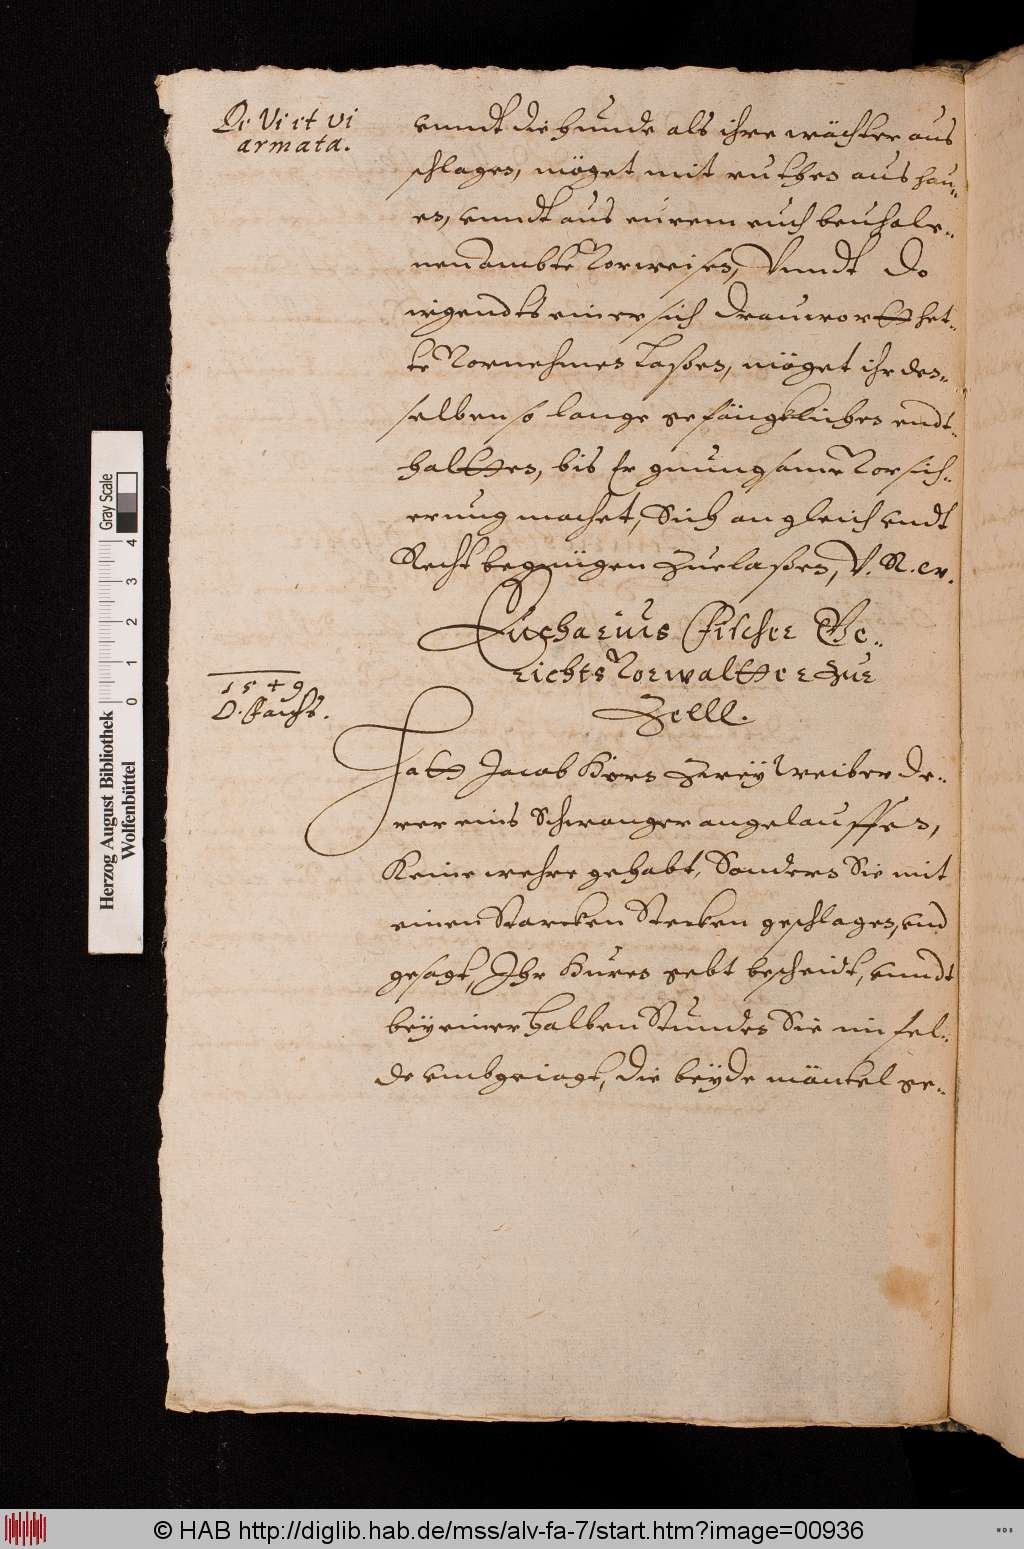 De Vi et vi
armata.
vnndt die hunde als ihre wächter aus
schlagen, möget mit ruthen aus hau-
en, vnndt aus eurem euch beuhole-
nen ambte vorweisen, Vnndt do
irgendts einer sich
te vornehmen laßen, möget ihr den-
selben so lange gefängklichen endt-
haltten, bis Er gnungsame vorsich-
erung machet, Sich an gleich vndt
Recht begnügen zuelaßen, V. R. w.
Eucharius Fischer Ge-
richts Vorwaltter zur
Zelll.
1549
D. Fachs.
Hatt Jacob Körn zweÿ weiber de-
rer eins Schwanger angelauffen,
Keine wehre gehabt, Sondern Sie mit
einen Starcken Stecken geschlagen, vnd
gesagt, Ihr Huren gebt bescheidt, vnndt
beÿ einer halben Stunden Sie im fel-
de vmbgeiagt, die beÿde mäntel ge-
Gray Scale
0 1 2 3 4
Herzog August Bibliothek
Wolfenbüttel
© HAB http://diglib.hab.de/mss/alv-fa-7/start.htm?image=00936